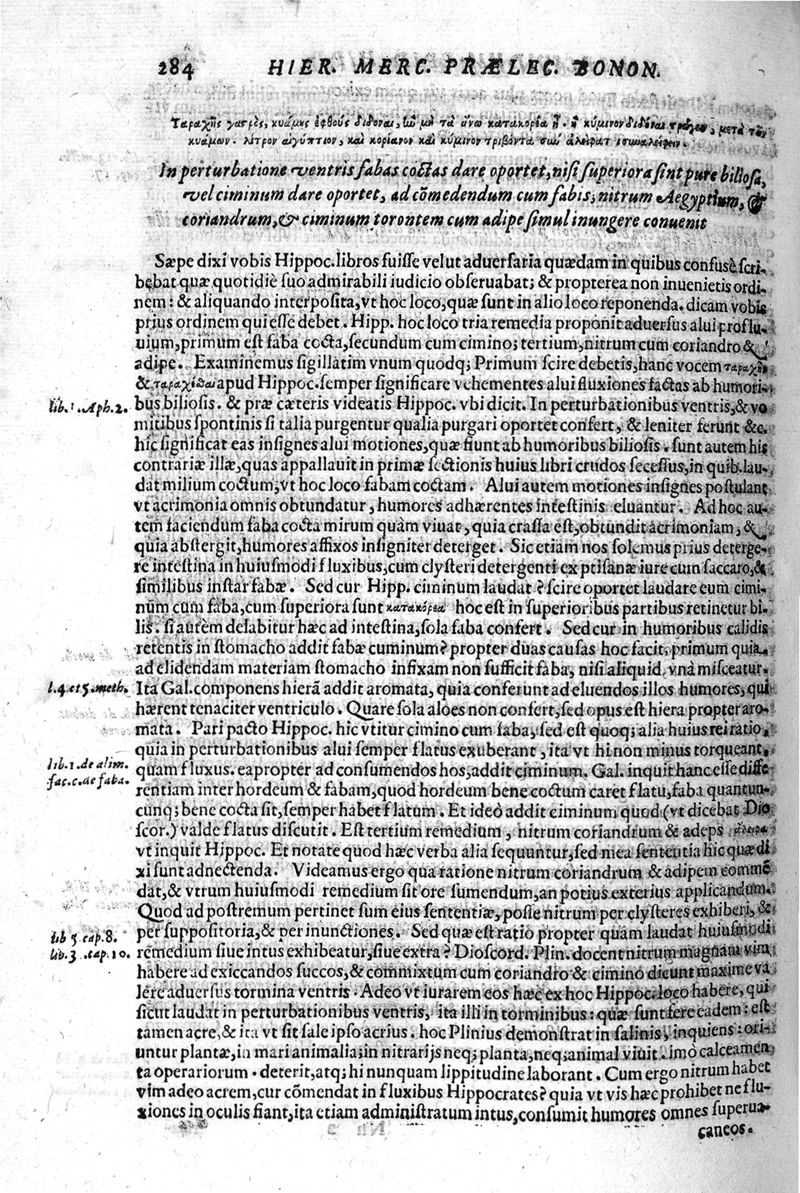 284 HIER. MERC. PRÆLEC. BONON.
Ταραχῆς γαστρὸς, κυάμους ἑφθοὺς διδόναι, ἢν μὴ τὰ ἄνω κατακορέα ᾖ. ἢ κύμινον διδόναι τρώγειν, μετὰ τῶν
κυάμων. λίτρον αἰγύπτιον, καὶ κορίανον καὶ κύμινον τρίβοντα σὺν ἀλείφατι
In perturbatione ventris fabas coctas dare oportet, nisi superiora sint pure biliosa,
vel ciminum dare oportet, ad cōmedendum cum fabis; nitrum Aegyptium, &
coriandrum, & ciminum torontem cum adipe simul inungere conuenit
Sæpe dixi vobis Hippoc. libros fuisse velut aduersaria quædam in quibus confusè scri-
bebat quæ quotidiè suo admirabili iudicio obseruabat; & propterea non inuenietis ordi-
nem: & aliquando interposita, vt hoc loco, quæ sunt in alio loco reponenda. dicam vobis
prius ordinem qui esse debet. Hipp. hoc loco tria remedia proponit aduersus alui proflu-
uium, primum est faba cocta, secundum cum cimino; tertium, nitrum cum coriandro &
adipe. Examinemus sigillatim vnum quodq; Primum scire debetis, hanc vocem ταραχῆς
& apud Hippoc. semper significare vehementes alui fluxiones factas ab humori-
lib. 1. Aph. 2. bus biliosis. & præ cæteris videatis Hippoc. vbi dicit. In perturbationibus ventris, & vo
mitibus spontinis si talia purgentur qualia purgari oportet confert, & leniter ferunt &c.
hic significat eas insignes alui motiones, quæ fiunt ab humoribus biliosis. sunt autem his
contrariæ illæ, quas appallauit in primæ sectionis huius libri crudos secessus, in quib. lau-
dat milium coctum, vt hoc loco fabam coctam. Alui autem motiones insignes postulant
vt acrimonia omnis obtundatur, humores adhærentes intestinis eluantur. Ad hoc au-
tem faciendum faba cocta mirum quàm viuat, quia crassa est, obtundit acrimoniam, &
quia abstergit, humores affixos insigniter deterget. Sic etiam nos solemus prius deterge-
re intestina in huiusmodi fluxibus, cum clysteri detergenti ex ptisanæ iure cum saccaro, &
similibus instar fabæ. Sed cur Hipp. ciminum laudat? scire oportet laudare eum cimi-
nūm cum faba, cum superiora sunt κατακόρεα hoc est in superioribus partibus retinetur bi-
lis. si autem delabitur hæc ad intestina, sola faba confert. Sed cur in humoribus calidis
retentis in stomacho addit fabæ cuminum? propter duas causas hoc facit, primum quia
ad elidendam materiam stomacho infixam non sufficit faba, nisi aliquid vnà misceatur.
l. 4. et 5. meth. Ita Gal. componens hierā addit aromata, quia conferunt ad eluendos illos humores, qui
hærent tenaciter ventriculo. Quare sola aloes non confert, sed opus est hiera propter aro-
mata. Pari pacto Hippoc. hic vtitur cimino cum faba, sed est quoq; alia huius rei ratio,
quia in perturbationibus alui semper flatus exuberant, ita vt hi non minus torqueant,
lib. 1. de alim. quam fluxus. eapropter ad consumendos hos, addit ciminum. Gal. inquit hanc esse diffe
fac. c. de faba. rentiam inter hordeum & fabam, quod hordeum bene coctum caret flatu, faba quantun-
cunq; bene cocta sit, semper habet flatum. Et ideò addit ciminum quod (vt dicebat Dio
scor.) valde flatus discutit. Est tertium remedium, nitrum coriandrum & adeps
vt inquit Hippoc. Et notate quod hæc verba alia sequuntur, sed mea sententia hic quæ di
xi sunt adnectenda. Videamus ergo qua ratione nitrum coriandrum & adipem commē
dat, & vtrum huiusmodi remedium sit ore sumendum, an potius exterius applicandum.
Quod ad postremum pertinet sum eius sententiæ, posse nitrum per clysteres exhiberi, &
lib 5 cap. 8. per suppositoria, & per inunctiones. Sed quæ est ratio propter quam laudat huiusmodi
lib. 3. cap. 10. remedium siue intus exhibeatur, siue extra? Dioscord. Plin. docent nitrum magnam vim
habere ad exiccandos succos, & commixtum cum coriandro & cimino dicunt maxime va
lere aduersus tormina ventris. Adeo vt iurarem eos hæc ex hoc Hippoc. loco habere, qui
sicut laudat in perturbationibus ventris, ita illi in torminibus: quæ sunt fere eadem: est
tamen acre, & ita vt sit sale ipso acrius. hoc Plinius demonstrat in salinis, inquiens: ori-
untur plantæ, in mari animalia; in nitrarijs neq; planta, neq; animal viuit. imò calceamen
ta operariorum. deterit, atq; hi nunquam lippitudine laborant. Cum ergo nitrum habet
vim adeo acrem, cur cōmendat in fluxibus Hippocrates? quia vt vis hæc prohibet ne flu-
xiones in oculis fiant, ita etiam administratum intus, consumit humores omnes superua-
caneos.